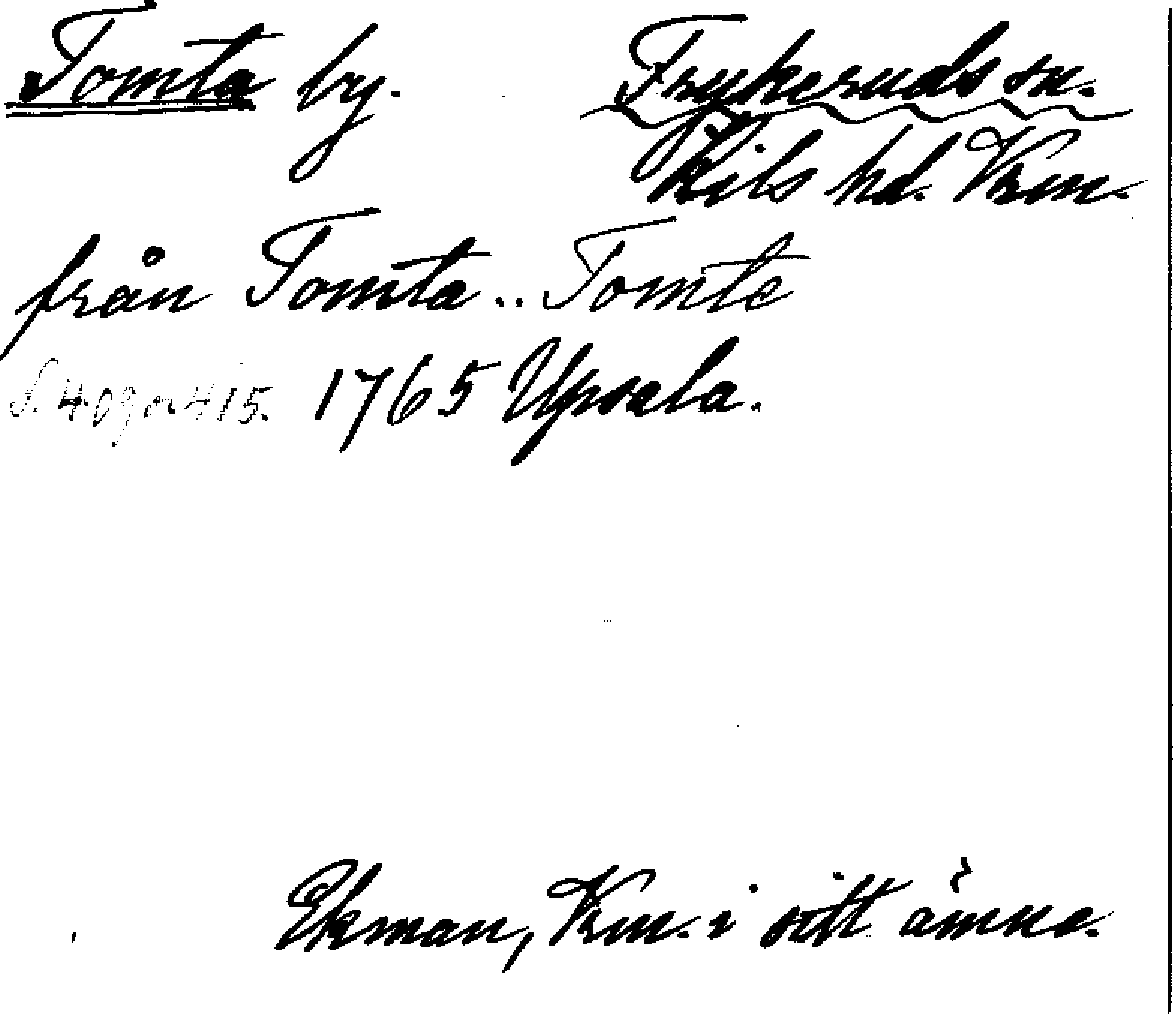 Tomta by. Frykeruds sn.
Kils hd. Vrm.
från Tomta .. Tomte
S. 409 o. 415. 1765 Upsala.
Ekman, Vrm. i sitt ämne.